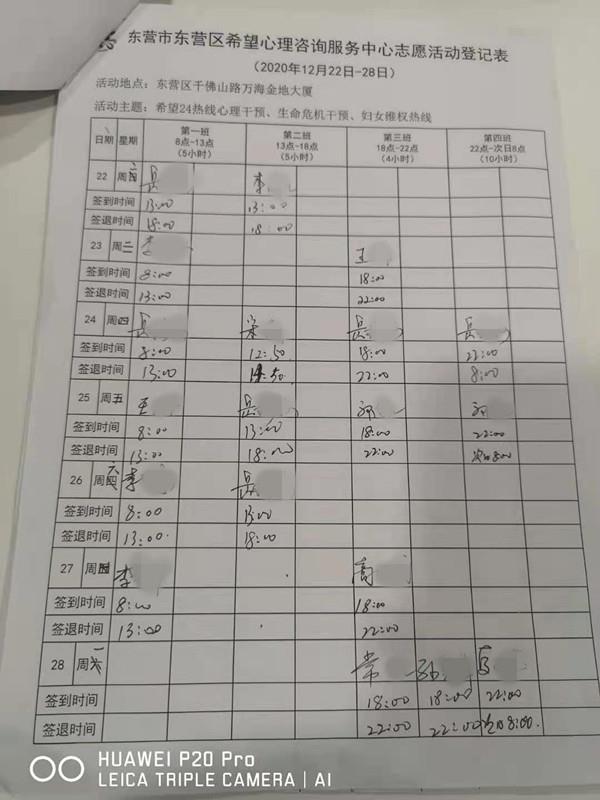 东营市东营区希望心理咨询服务中心志愿活动登记表
（2020年12月22日-28日）
活动地点：东营区千佛山路万海金地大厦
活动主题：希望24热线心理干预、生命危机干预、妇女维权热线
日期 星期 第一班 第二班 第三班 第四班
8点-13点 13点-18点 18点-22点 22点-次日8点
(5小时) (5小时) (4小时) (10小时)
22 周 吴 李
签到时间 13:00 13:00
签退时间 18:00 18:00
23 周 李 王
签到时间 8:00 18:00
签退时间 13:00 22:00
24 周四 吴 宋 吴 吴
签到时间 8:00 12:50 18:00 22:00
签退时间 13:00 22:00 8:00
25 周五 王 吴
签到时间 8:00 13:00 18:00 22:00
签退时间 13:00 18:00 22:00 次日8:00
26 周六 李 吴
签到时间 8:00 13:00
签退时间 13:00 18:00
27 周 李 高
签到时间 8:00 18:00
签退时间 13:00 22:00
28 周一 常
签到时间 18:00 18:00 22:00
签退时间 22:00 22:00 次日8:00.
HUAWEI P20 Pro
LEICA TRIPLE CAMERA | AI